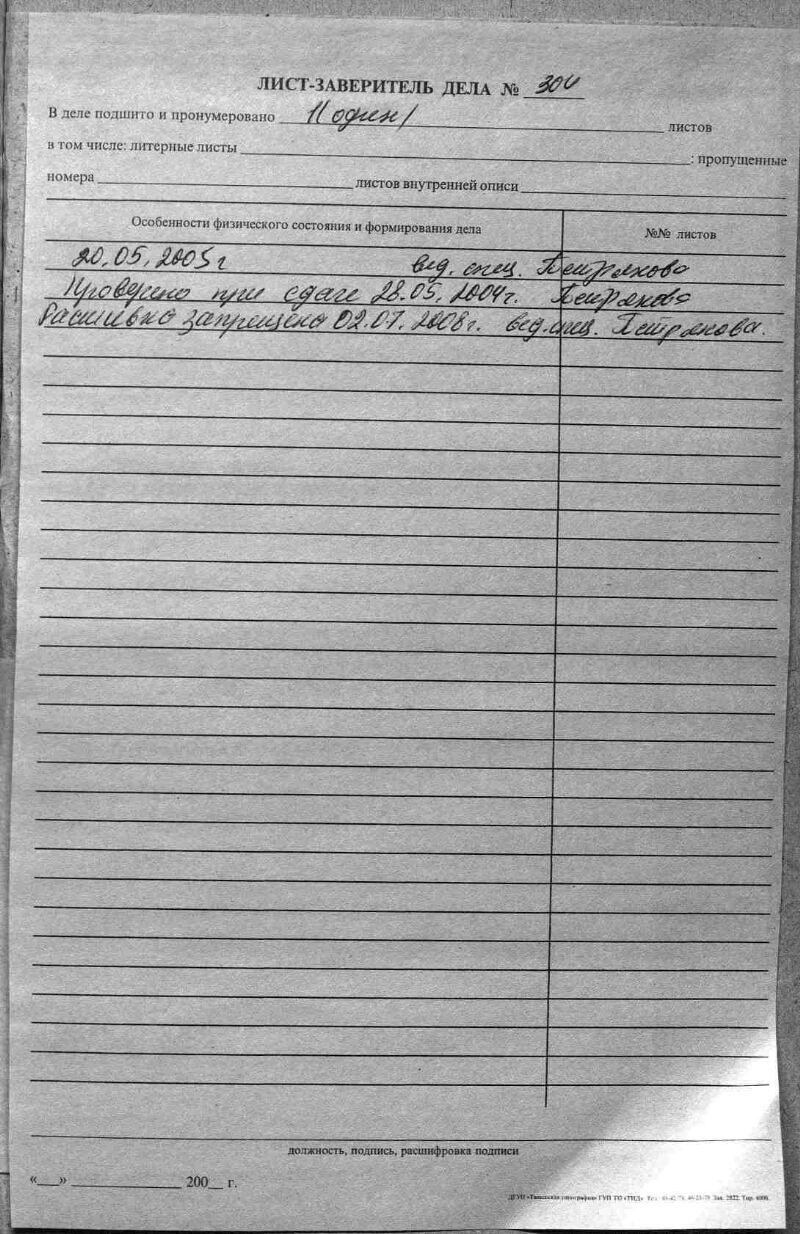 ЛИСТ-ЗАВЕРИТЕЛЬ ДЕЛА № 304
В деле подшито и пронумеровано 1(один) листов
в том числе: литерные листы : пропущенные
номера листов внутренней описи
Особенности физического состояния и формирования дела №№ листов
20.05.2003г вед. спец. Петрякова
Проверено при сдаче 28.05.2004г. Петрякова
Расшивка запрещена 02.07.2008г. вед.спец. Петрякова.
должность, подпись, расшифровка подписи
«__» 200__ г.
ГУП ТО «ТИД» Зак. 2822. Тир. 4000.